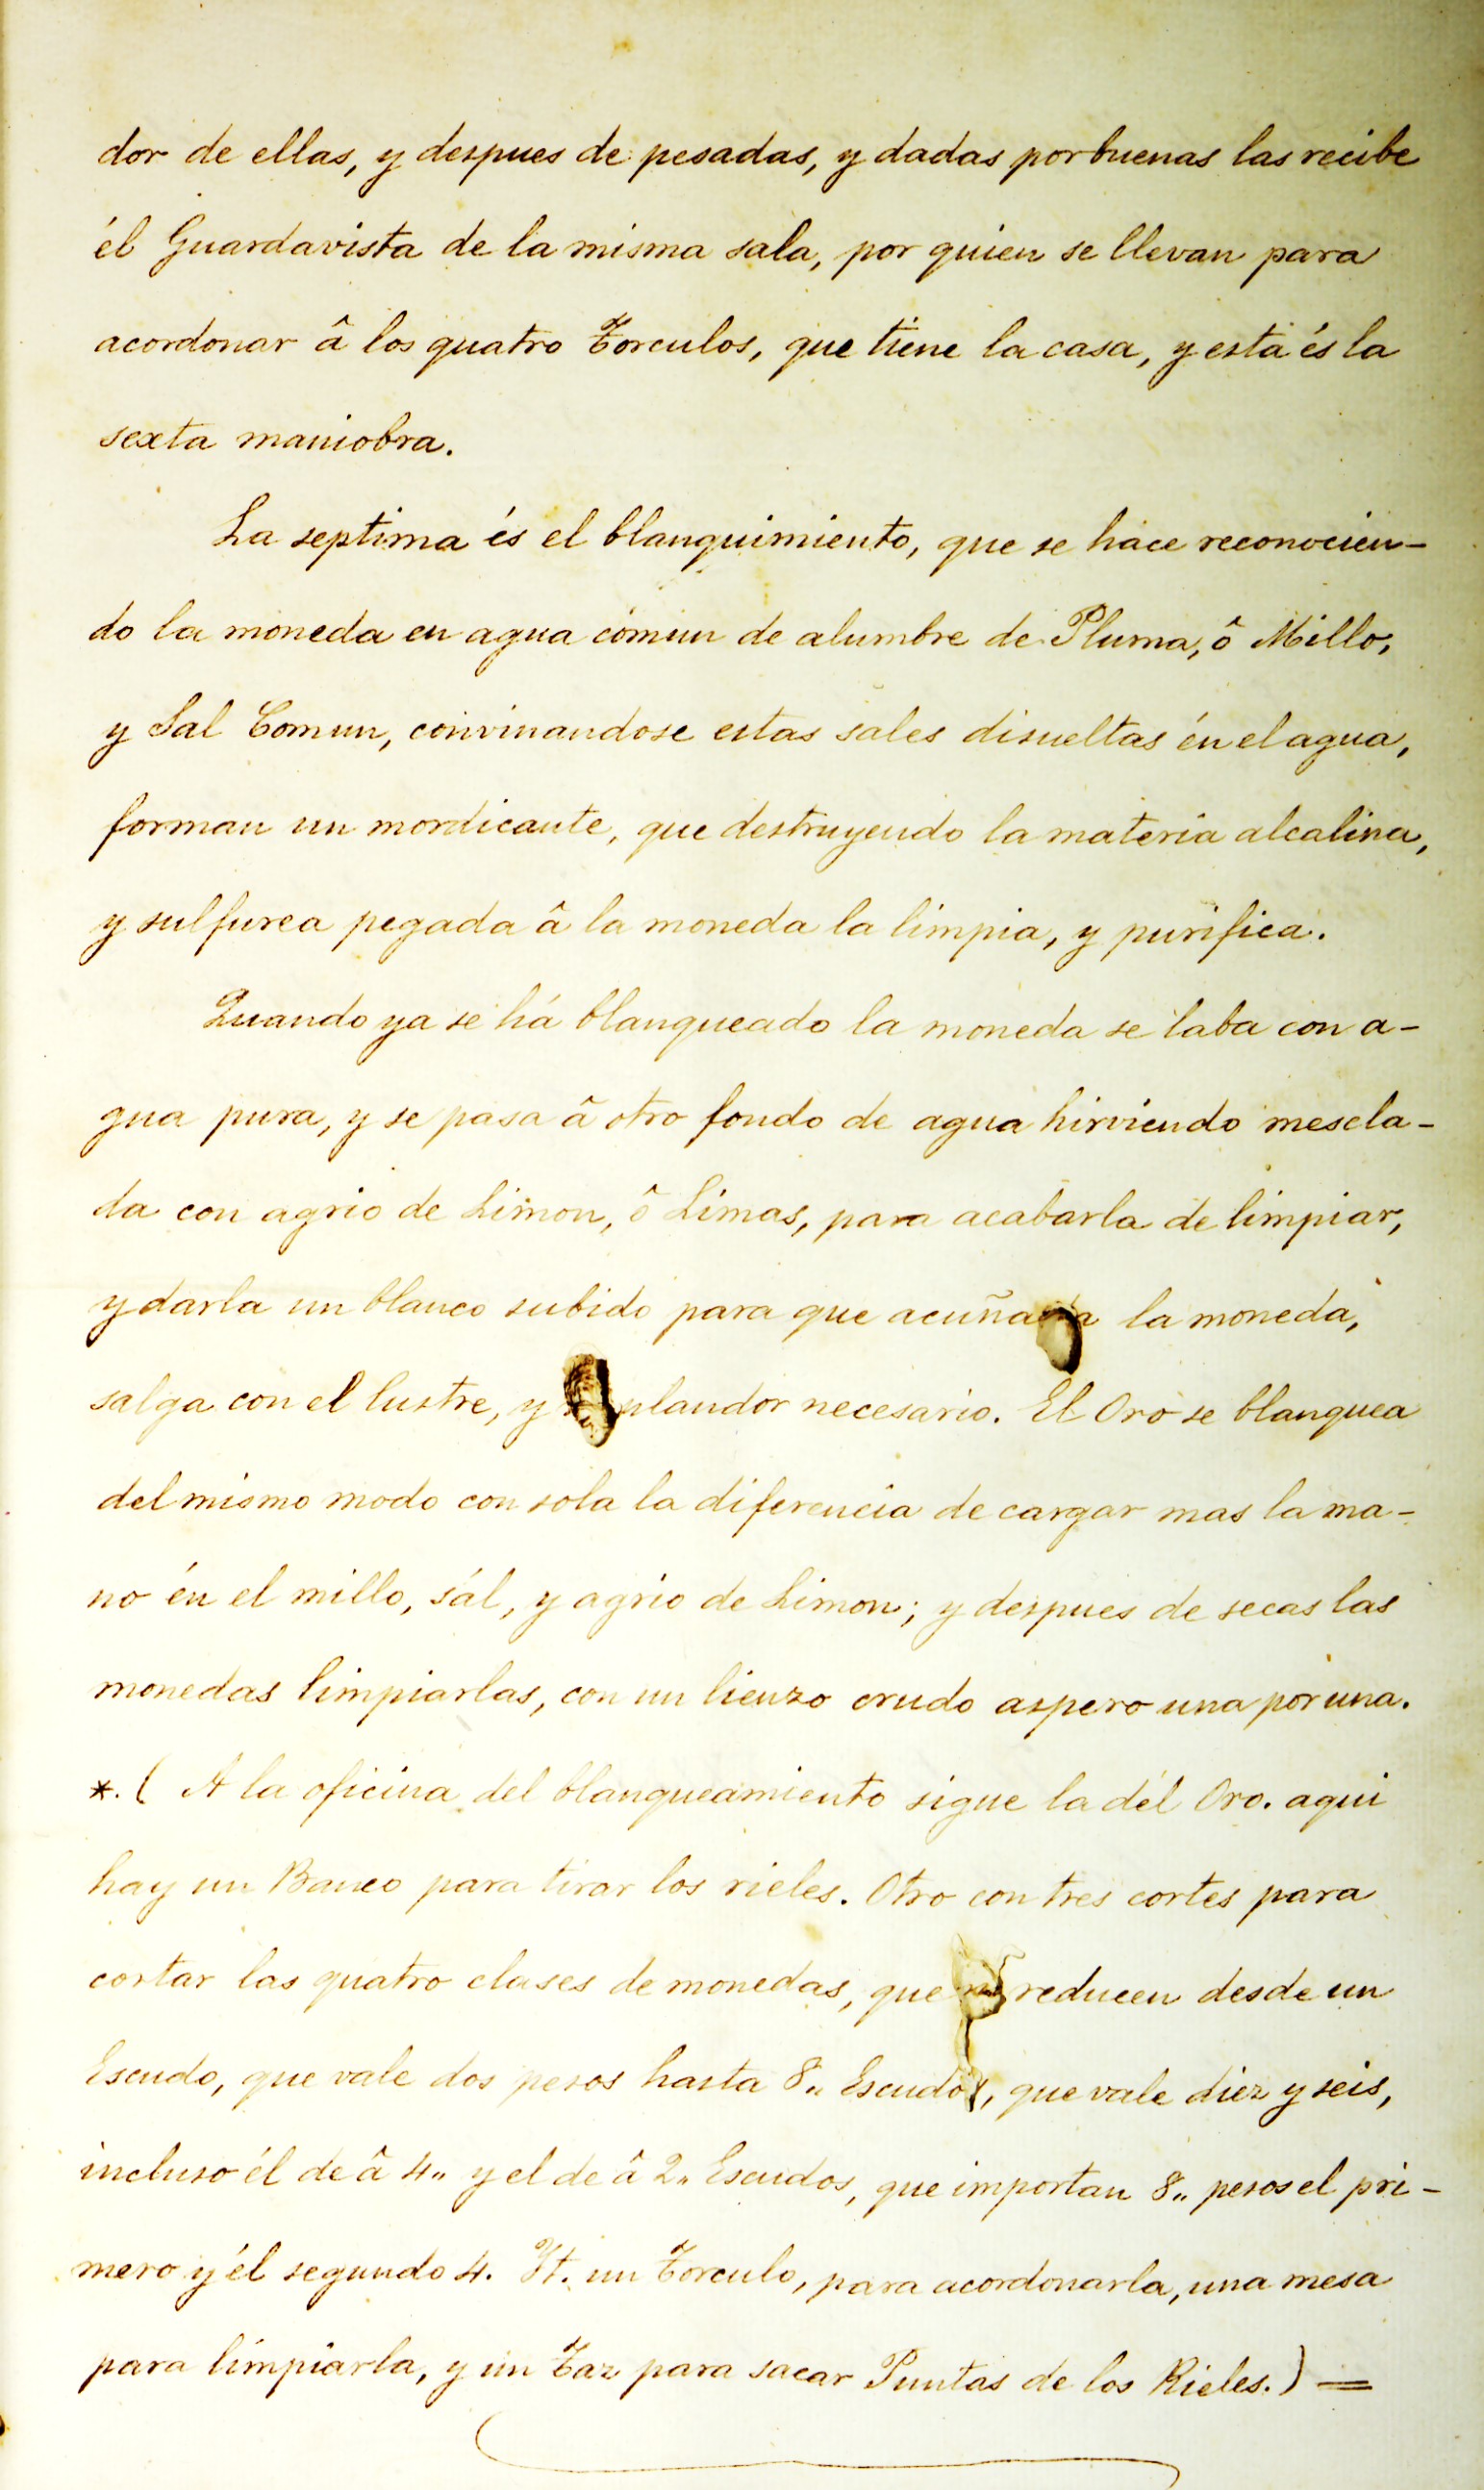 dor de ellas, y despues de pesadas, y dadas por buenas las recibe
él Guardavista de la misma sala, por quien se llevan para
acordonar â los quatro Torculos, que tiene la casa, y esta és la
sexta maniobra.
La septima és el blanquimiento, que se hace reconocien-
do la moneda en agua comun de alumbre de Pluma, ô Millo,
y Sal Comun, convinandose estas sales disueltas én el agua,
forman un mordicante, que destruyendo la materia alcalina,
y sulfurea pegada â la moneda la limpia, y purifica.
Quando ya se há blanqueado la moneda se laba con a-
gua pura, y se pasa â otro fondo de agua hirviendo mescla-
da con agrio de Limon, ô Limas, para acabarla de limpiar,
y darla un blanco subido para que acuñada la moneda,
salga con el lustre, y esplandor necesario. El Oro se blanquea
del mismo modo con sola la diferencia de cargar mas la ma-
no én el millo, sál, y agrio de Limon; y despues de secas las
monedas limpiarlas, con un lienzo crudo aspero una por una.
*. ( A la oficina del blanqueamiento sigue la dél Oro. aqui
hay un Banco para tirar los rieles. Otro con tres cortes para
cortar las quatro clases de monedas, que se reducen desde un
Escudo, que vale dos pesos hasta 8,, Escudos, que vale diez y seis,
incluso él de â 4,, y el de â 2,, Escudos, que importan 8,, pesos el pri-
mero y él segundo 4. Yt. un Torculo, para acordonarla, una mesa
para limpiarla, y un Taz para sacar Puntas de los Rieles.) =